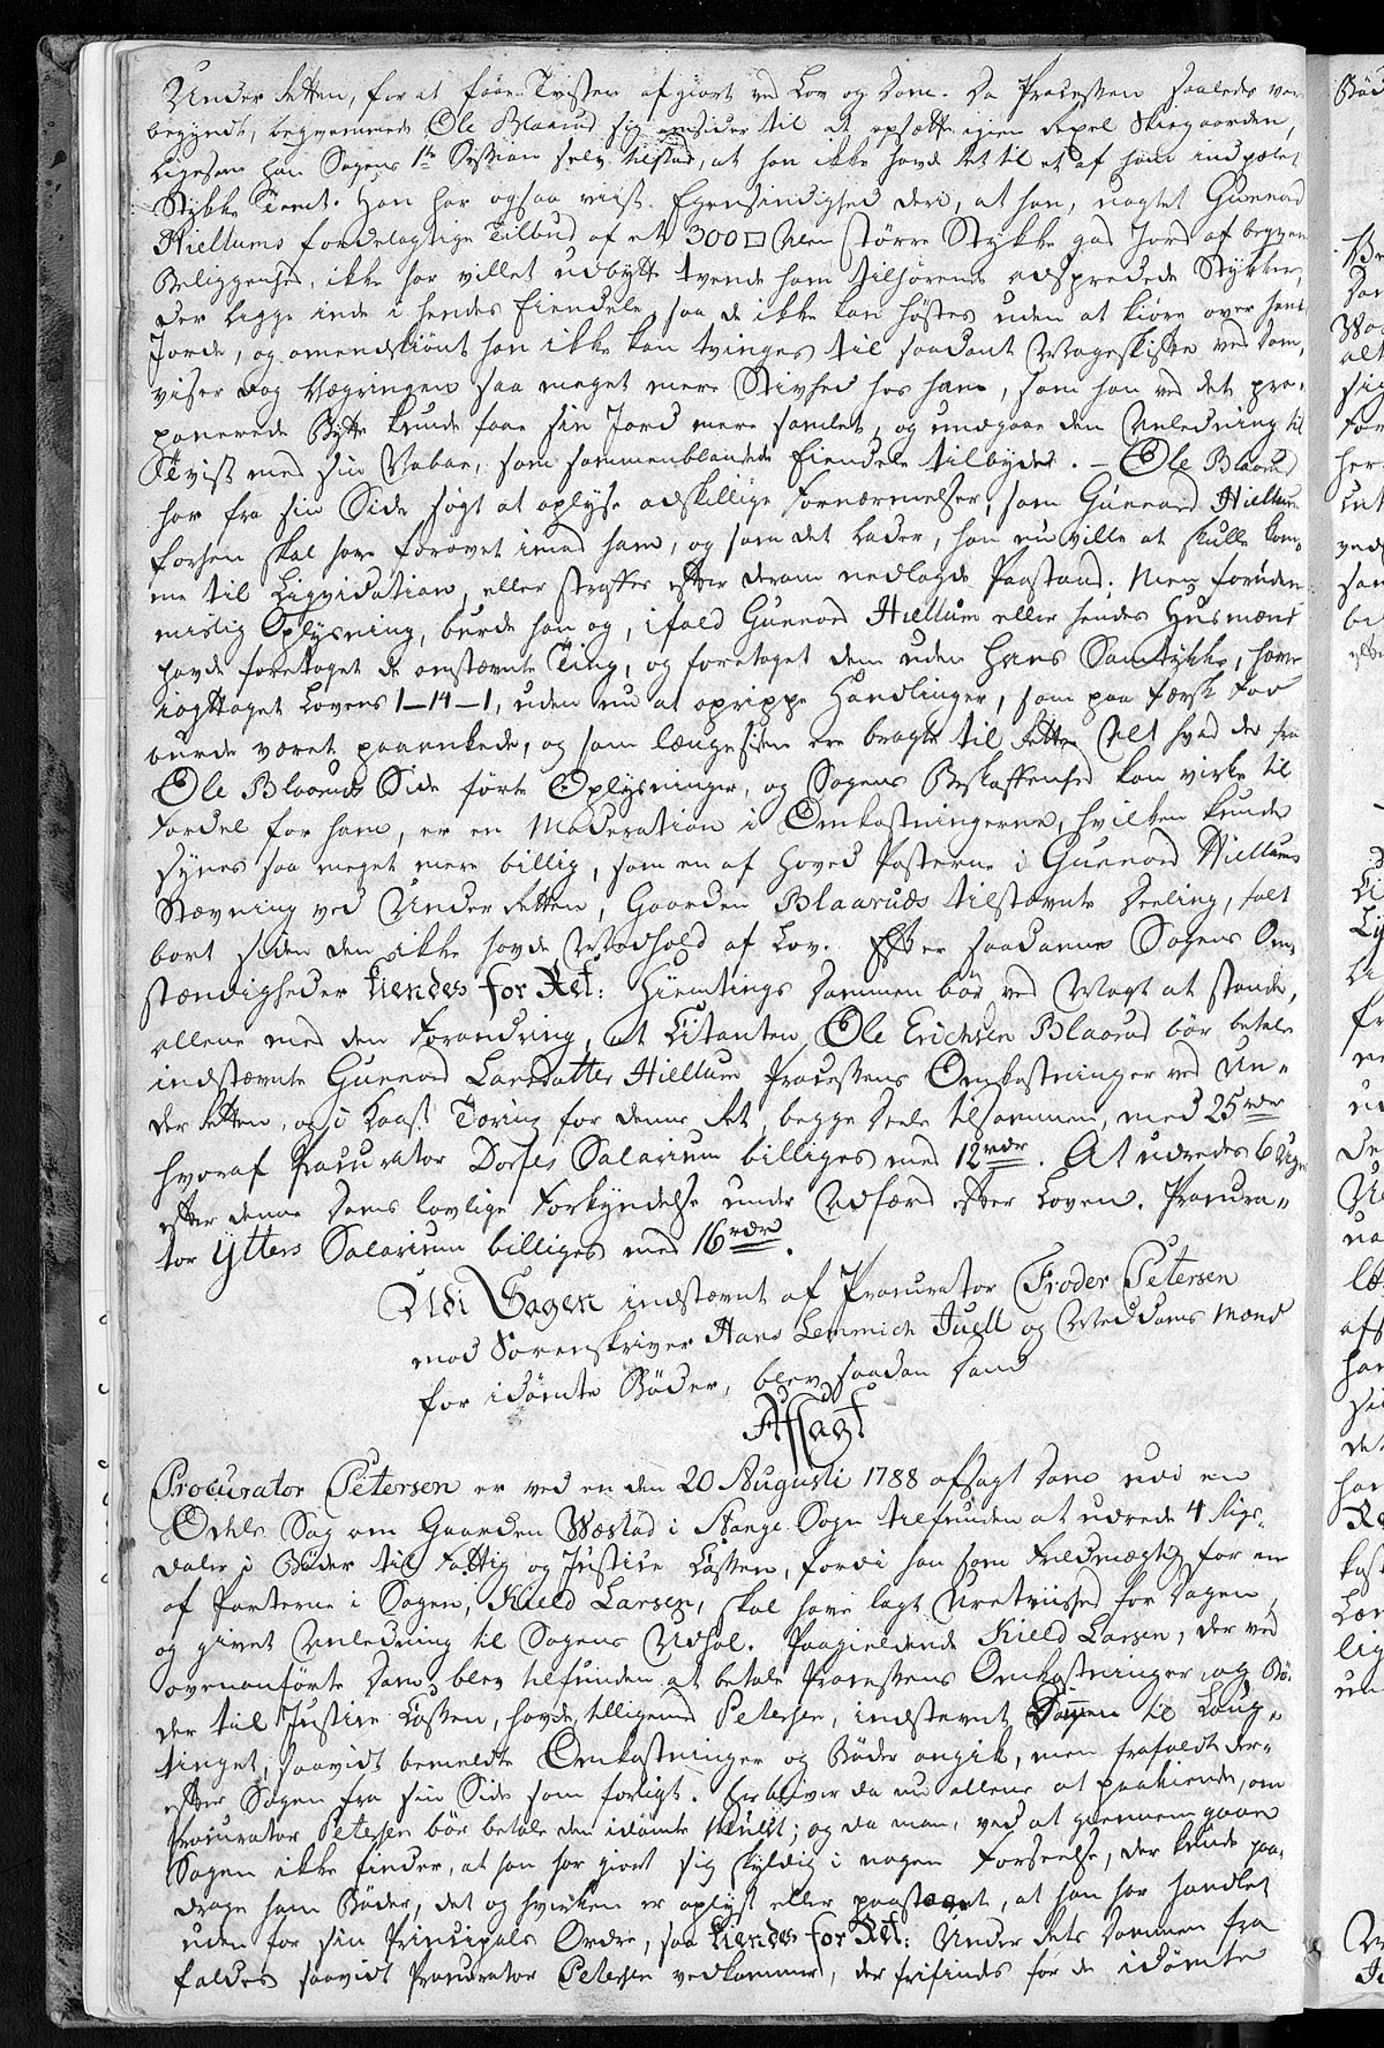 Under Retten, for at faae Tvisten afgiort ved Lov og Dom. Da Processen saaledes var
begyndt, beqvemmede Ole Blaarud sig omsider til at opsætte igien Repel Skiegaarden,
ligesom han Sagens 1te Session selv tilstod, at han ikke havde Ret til et af ham indpælet
Stykke Tomt. Han har ogsaa viist Egensindighed deri, at han, uagtet Gunnord
Hiellums fordelagtige Tilbud af et 300 □ Alen større Stykke god Jord af beqvem
Beliggenhed, ikke har villet udbytte tvende ham tilhørende adspredede Stykker,
der ligge inde i hendes Eiendele, saa de ikke kan høstes uden at kiøre over hendes
Jorde, og omendskiønt han ikke kan tvinges til saadant Mageskifte ved Dom,
viser dog Vægringen saa meget mere Stivhed hos ham, som han ved det pro-
ponerede Bytte kunde faae sin Jord mere samlet, og undgaae den Anledning til
Tvist med sin Naboe, som sammenblandede Eiendele tilbyder. – Ole Blaarud
har fra sin Side søgt at oplyse adskillige Fornærmelser, som Gunnord Hiellum
forhen skal have forøvet imod ham, og som det lader, han nu ville at skulle kom-
me til Liqvidation, eller straffes efter derom nedlagde Paastand; Men foruden
mislig Oplysning, burde han og, ifald Gunnord Hiellum eller hendes Husmænd
havde foretaget de omstævnte Ting, og foretaget dem uden hans Samtykke, have
iagttaget Lovens 1–14–1, uden nu at oprippe Handlinger, som paa færsk Foed
burde været paaankede, og som længe siden ere bragte til Rette. Alt hvad de fra
Ole Blaaruds Side førte Oplysninger, og Sagens Beskaffenhed kan virke til
Fordel for ham, er en Moderation i Omkostningerne, hvilken kunde
synes saa meget mere billig, som en af Hoved Posterne i Gunnord Hiellums
Stævning ved Under Retten, Gaarden Blaaruds tilstævnte Deeling, falt
bort siden den ikke havde Medhold af Lov. Efter saadanne Sagens Om-
stændigheder kiendes for Ret: Hiemtings Dommen bør ved Magt at stande,
allene med den Forandring, at Citanten Ole Erichsen Blaarud bør betale
indstævnte Gunnord Larsdatter Hiellum Processens Omkostninger ved Un-
der Retten, og i Kaast Tæring for denne Ret, begge Dele tilsammen, med 25 rdr
hvoraf Procurator Dorfes Salarium billiges med 12 rdr. At udredes 6 Uger
efter denne Doms lovlige Forkyndelse under Adfærd efter Loven. Procura-
tor Ytters Salarium billiges med 16 rdr.
Udi Sagen indstævnt af Procurator Frøder Petersen
mod Sorenskriver Hans Lemmich Juell og Meddoms Mænd
for idømte Bøder, blev saadan Dom
Afsagt
Procurator Petersen er ved en den 20 Augusti 1788 afsagt Dom udi en
Odels Sag om Gaarden Wæstad i Stange Sogn tilfunden at udrede 4 Rigs-
daler i Bøder til Fattig og Justice Cassen, fordi han som Fuldmægtig for en
af Parterne i Sagen, Kield Larsen, skal have lagt Uretviished for Dagen,
og givet Anledning til Sagens Udhal. Paagieldende Kield Larsen, der ved
ovenanførte Dom blev tilfunden at betale Processens Omkostninger og Bø-
der til Justice Cassen, havde, tilligemed Petersen, indstevnt Dommen til Laug-
tinget, saavidt bemeldte Omkostninger og Bøder angik, men frafaldt der-
efter Sagen fra sin Side som forligt. Her bliver da nu allene at paakiende, om
Procurator Petersen bør betale den idømte Mulct; og da man, ved at giennemgaae
Sagen ikke finder, at han har giort sig skyldig i nogen Forseelse, der kunde paa-
drage ham Bøder, det og hverken er oplyst eller paastaaet, at han har handlet
uden for sin Principals Ordre, saa kiendes for Ret: Under Rets Dommen fra
faldes saavidt Procurator Petersen vedkommer, der frifindes for de idømte